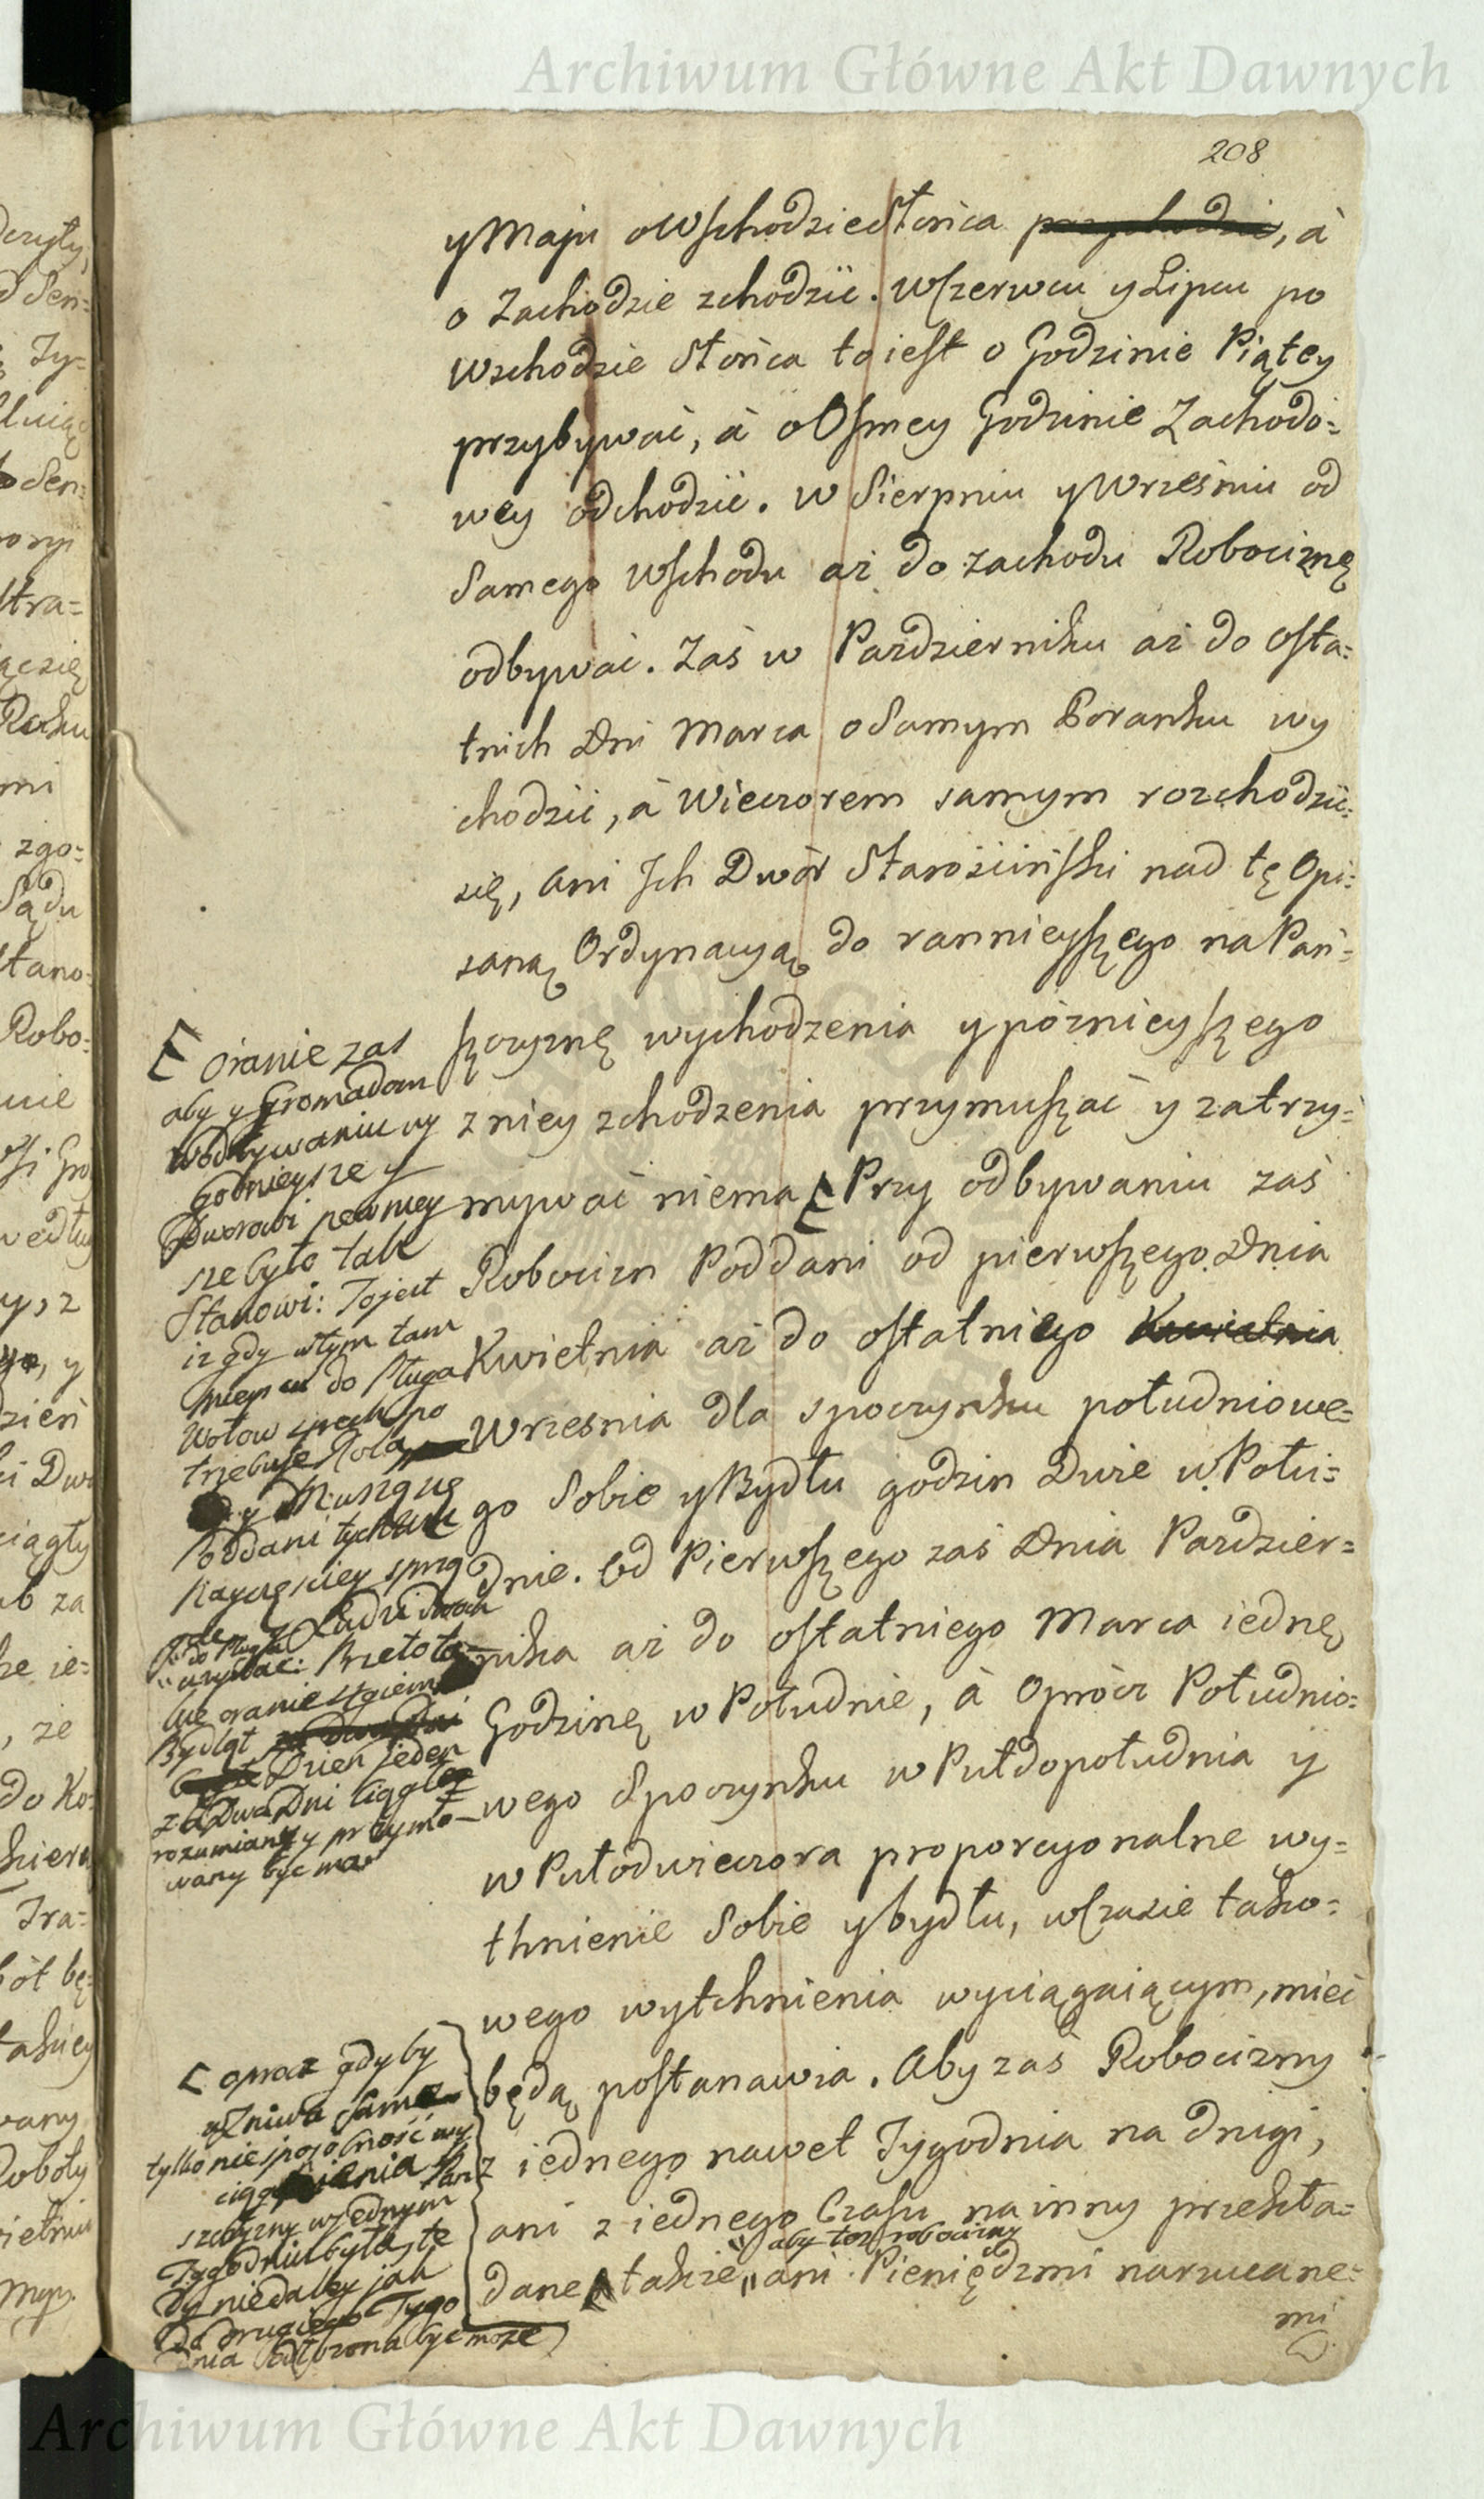 Archiwum Główne Akt Dawnych
208
y Maju o Wschodzie Słońca przychodzić, à
o Zachodzie zchodzić. W Czerwcu y Lipcu po
Wzchodzie Słońca to iest o Godzinie Piątey
przybywać, à o Osmey Godzinie Zachodo=
wey odchodzić. W Sierpniu y Wrześniu od
Samego Wschodu aż do zachodu Robociznę
odbywać. Zaś w Pazdzierniku aż do osta=
tnich Dni Marca o Samym Poranku wy
chodzić, à Wieczorem samym rozchodzić=
się, ani Ich Dwór Starościński nad tę Opi=
saną Ordynacyą do rannieyszego na Pań=
szczyznę wychodzenia y póznieyszego
z niey zchodzenia przymuszać y zatrzy=
mywać niema [ Przy odbywaniu zaś
Robocizn Poddani od pierwszego Dnia
Kwietnia aż do ostatniego Kwietnia
Wrzesnia dla spoczynku południowe=
go Sobie y Bydłu godzin Dwie w Połu=
dnie. Od Pierwszego zaś Dnia Pazdzier=
nika aż do ostatniego Marca iednę
Godzinę w Południe, à Oprócz Południo=
wego Spoczynku w Puł do południa y
w Puł od wieczora proporcyonalne wy=
thnienie Sobie y bydłu, w czasie tako=
wego wytchnienia wyciągaiącym, mieć
będą postanawia. Aby zaś Robocizny
z iednego nawet Tygodnia na drugi,
ani z iednego Czasu na inny przekła=
aby też robocizny
dane, także ani Pieniędzmi narzucane=
mi
[ Oranie zas
aby y Gromadom
w odbywaniu wy
godnieysze y
Dworowi pewniey
sze było tak
Stanowi: To jest
iz gdy w tym tam
mieyscu do Pługa
Wołow sześciu po
trzebuje Rola
y Muszą
Poddani tychże
do Pługa
uzywac: Przeto ta
kie oranie sześciem
Bydląt za dwa Dni
Dzien jeden
za Dwa Dni ciągłe
rozumiany y przymo=
wany byc ma
[ oprocz gdyby
w Zniwa same
tylko niesposobność wy
ciągnienia Pań
szczyzny w jednym
Tygodniu była, te
dy nie daley jak
do drugiego Tygo
dnia odłozona byc moze
Archiwum Główne Akt Dawnych